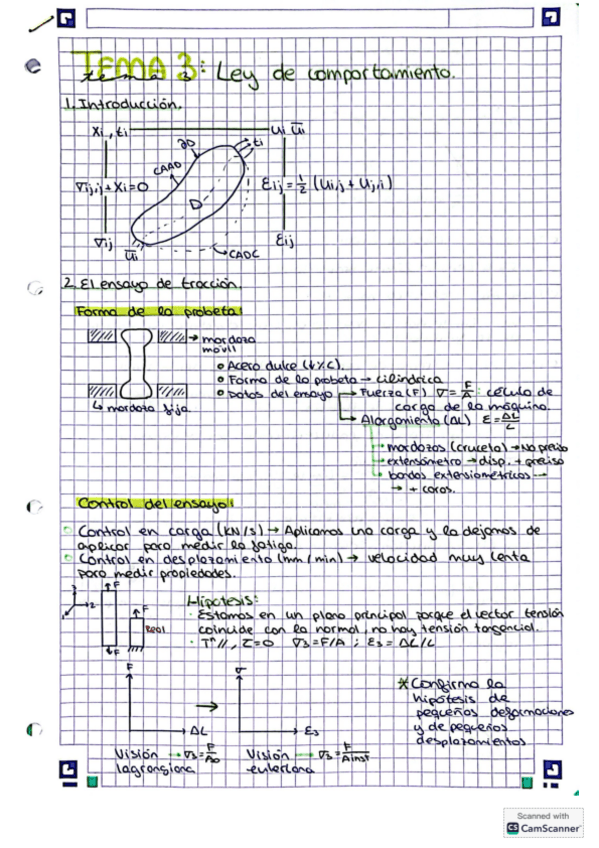 TEMA 3: Ley de comportamiento.
tema 3
1. Introducción.
Xi, ti
ui ūi
∂D
ti
CAAD
∇ij,j + Xi = 0
D
Eij = 1/2 (ui,j + uj,i)
∇ij
ūi
CADC
Eij
2. El ensayo de tracción.
Forma de la probeta:
→ mordaza
móvil
↳ mordaza fija.
Acero dulce (↓%C).
Forma de la probeta → cilíndrica
Datos del ensayo → Fuerza (F) ∇ = F/A : célula de
carga de la máquina.
Alargamiento (ΔL) E = ΔL/L
mordazas (cruceta) → No preciso
extensómetro → disp. + preciso
bandas extensiométricas →
→ + caras.
Control del ensayo:
Control en carga (KN/s) → Aplicamos una carga y la dejamos de
aplicar para medir la fatiga.
Control en desplazamiento (mm/min) → velocidad muy lenta
para medir propiedades.
3
2
1
↑F
↑F
Real
↓F
Hipótesis:
· Estamos en un plano principal porque el vector tensión
coincide con la normal, no hay tensión tangencial.
· Tⁿ //, τ=0 ∇3=F/A ; E3 = ΔL/L
F
ΔL
σ
E3
→
* Confirma la
hipótesis de
pequeñas deformaciones
y de pequeños
desplazamientos
Visión → ∇3 = F/A0
lagrangiana
Visión → ∇3 = F/Ainst
euleriana
Scanned with
CS CamScanner